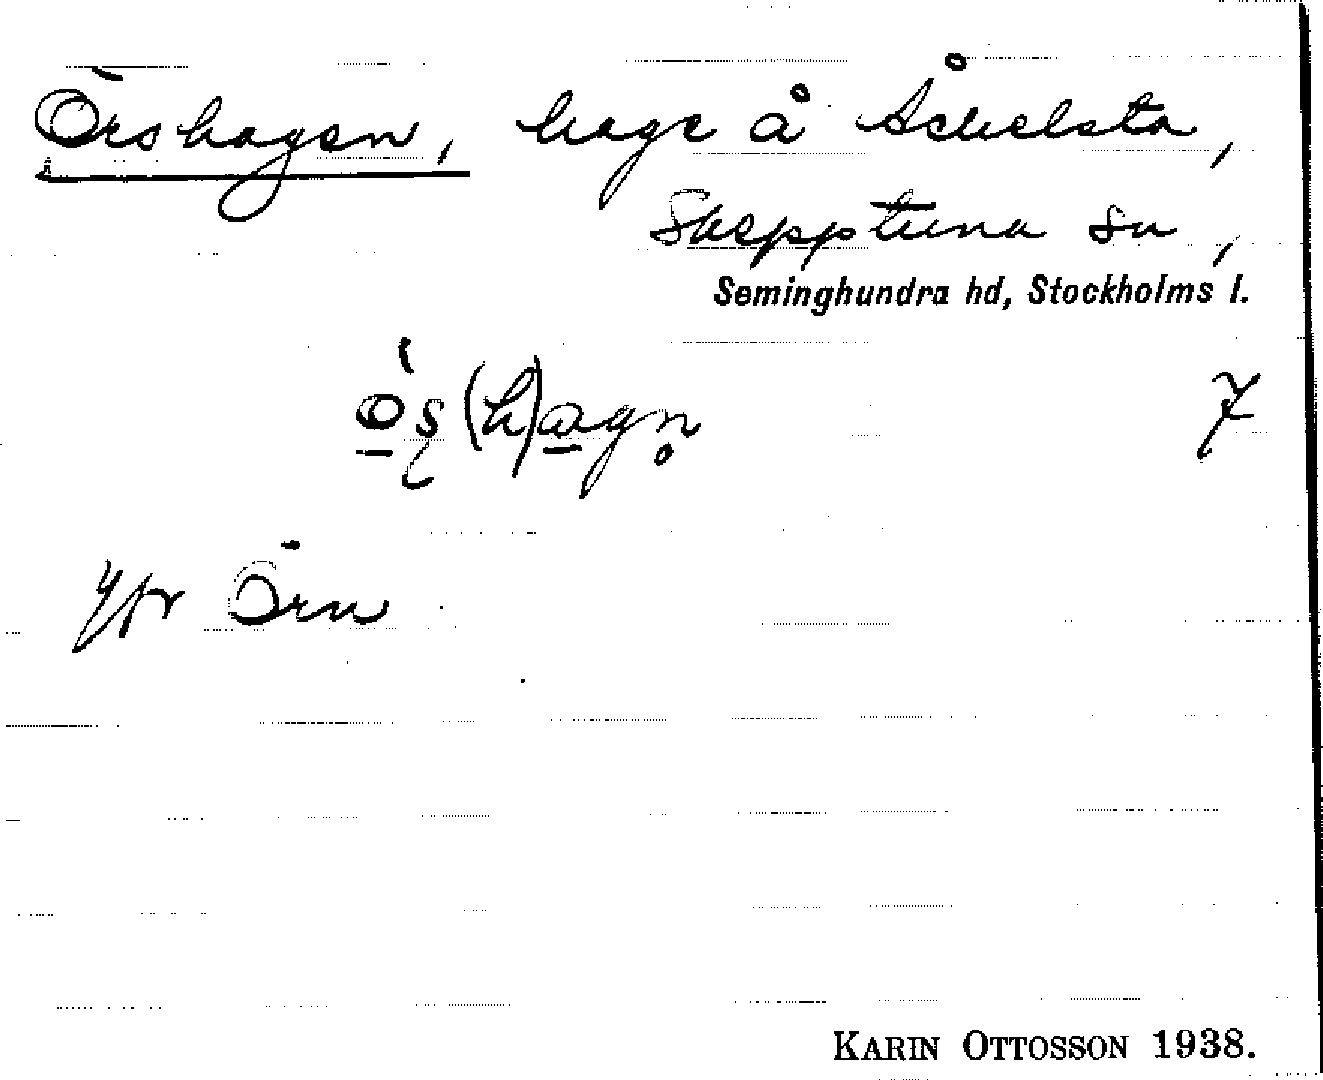 Örshagen, hage å Åshelsta,
Skepptuna sn,
Seminghundra hd, Stockholms l.
7
Jfr Örn
KARIN OTTOSSON 1938.